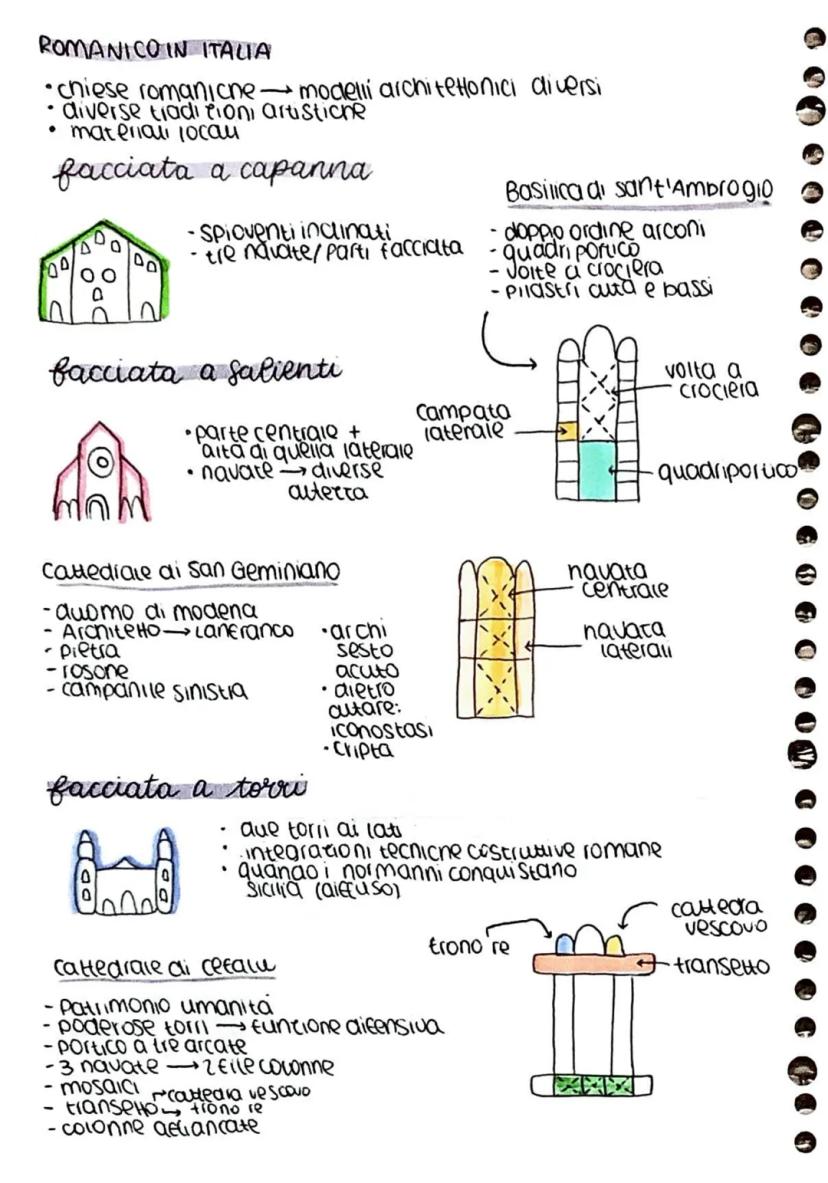 ROMANICO IN ITALIA
• chiese romaniche → modelli architettonici diversi
• diverse tradizioni artistiche
• materiali locali
facciata a capanna
- spioventi inclinati
- tre navate/parti facciata
Basilica di sant'Ambrogio
- doppio ordine arconi
- quadriportico
- volte a crociera
- pilastri alta e bassi
volta a
crociera
campata
laterale
quadriportico
facciata a salienti
• parte centrale +
alta di quella laterale
• navate → diverse
altezza
cattedrale di San Geminiano
- duomo di modena
- Architetto → Lanfranco
- pietra
- rosone
- campanile sinistra
• archi
sesto
acuto
• dietro
altare:
iconostasi
• cripta
navata
centrale
navata
laterali
facciata a torri
• due torri ai lati
• integrazioni tecniche costruttive romane
• quando i normanni conquistano
Sicilia (diffuso)
cattedrale di cefalu
- patrimonio umanità
- poderose torri → funzione difensiva
- portico a tre arcate
- 3 navate → 2 file colonne
- mosaici
- transetto → cattedra vescovo
→ trono re
- colonne affiancate
trono re
cattedra
vescovo
transetto